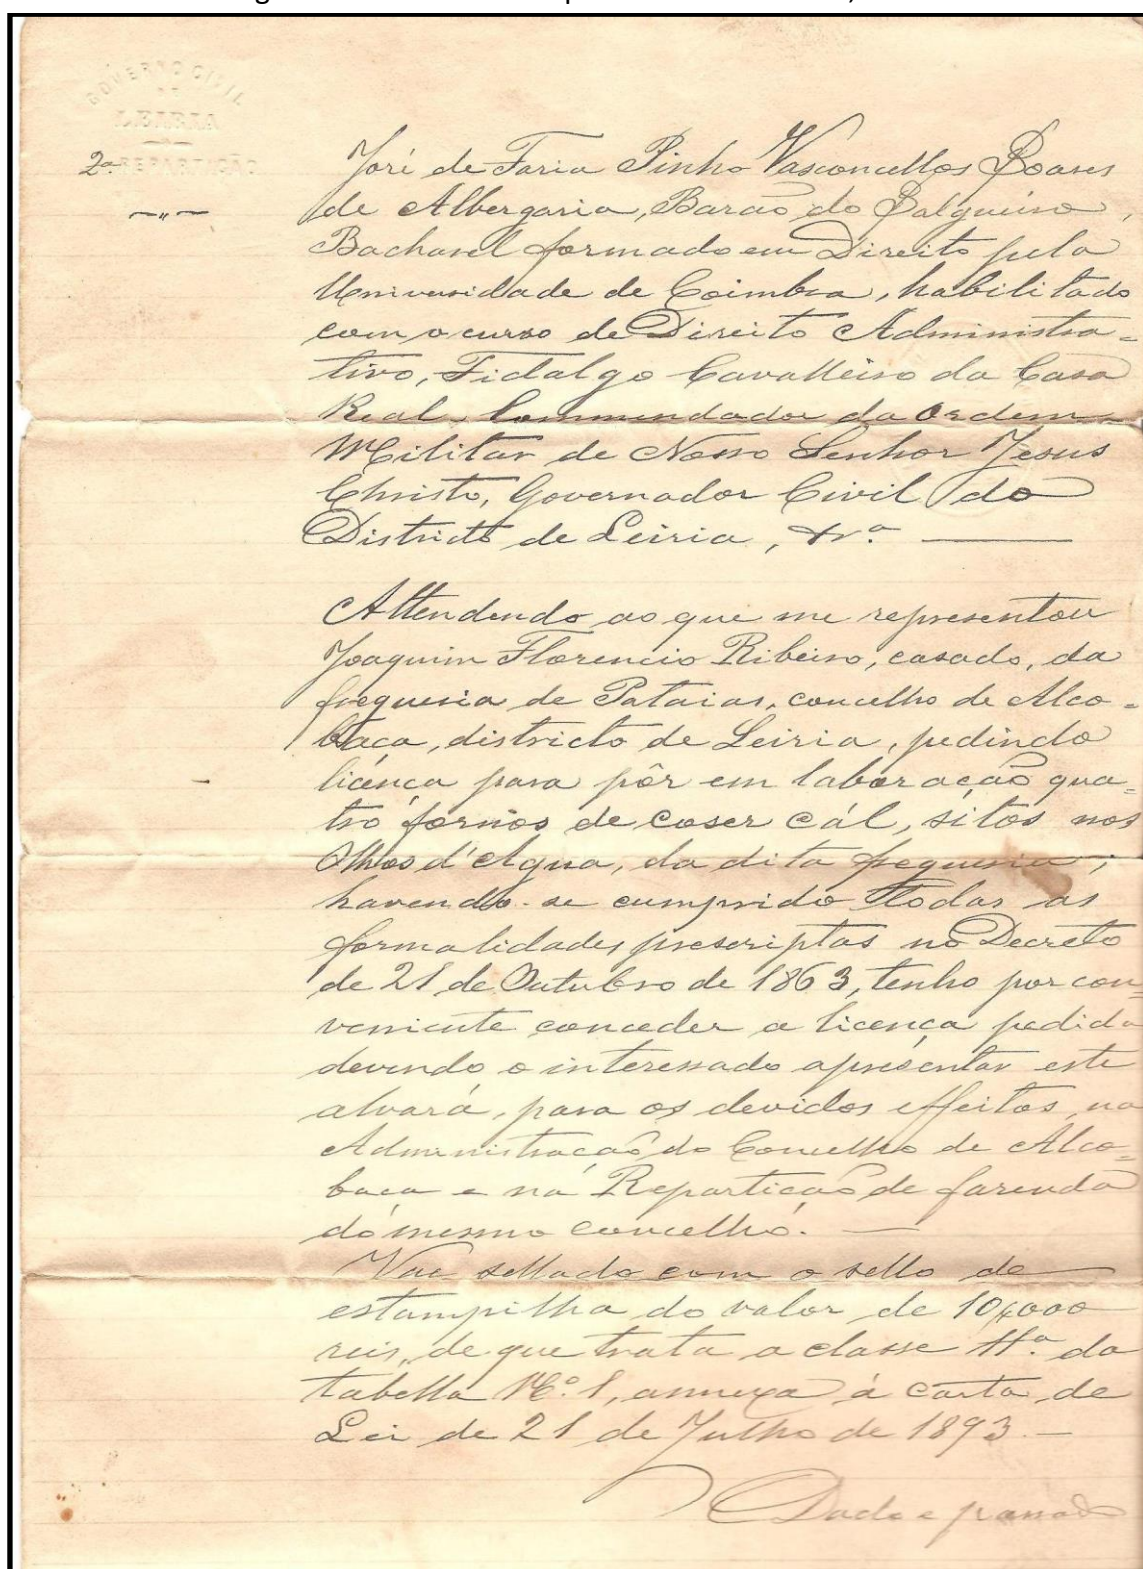 GOVERNO CIVIL
DE
LEIRIA
2ª REPARTIÇÃO
José de Faria Pinho Vasconcellos Soares
de Albergaria, Barão do Salgueiro,
Bacharel formado em Direito pela
Universidade de Coimbra, habilitado
com o curso de Direito Administra-
tivo, Fidalgo Cavalleiro da Casa
Real, Commendador da Ordem
Militar de Nosso Senhor Jesus
Christo, Governador Civil do
Districto de Leiria, &ª
Attendendo ao que me representou
Joaquim Florencio Ribeiro, casado, da
freguesia de Pataias, concelho de Alco-
baça, districto de Leiria, pedindo
licença para pôr em laboração qua-
tro fornos de coser cál, sitos nos
Olhos d'Agua, da dita freguesia;
havendo-se cumprido todas as
formalidades prescriptas no Decreto
de 21 de Outubro de 1863, tenho por con-
veniente conceder a licença pedida
devendo o interessado apresentar este
alvará, para os devidos effeitos, na
Administração do Concelho de Alco-
baça e na Repartição de fazenda
do mesmo concelho.
Vae sellado com o sello de
estampilha do valor de 10$000
reis, de que trata a classe 11ª da
tabella Nº 1, annexa á carta de
Lei de 21 de Julho de 1893.
Dado e passado